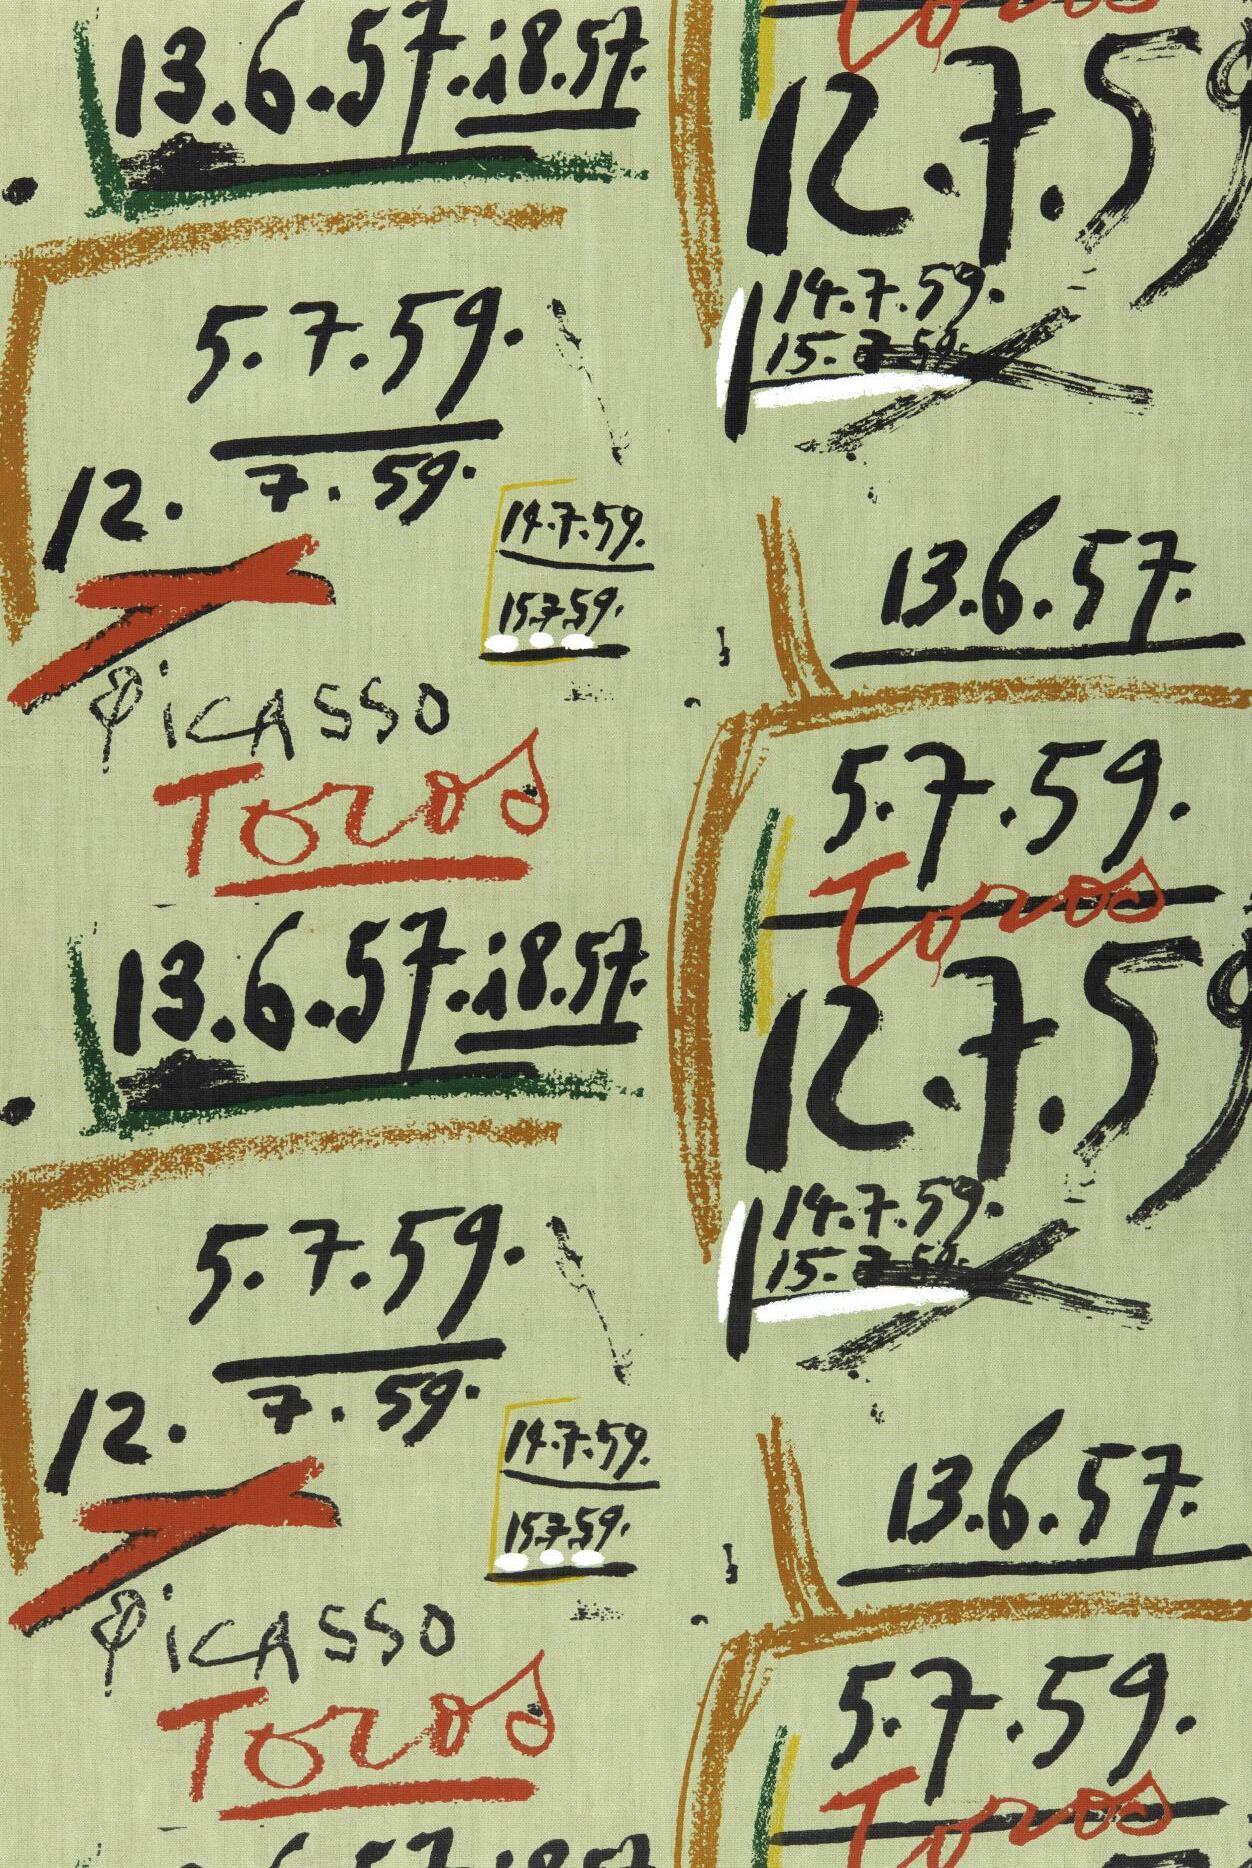 13.6.57.18.57.
5.7.59.
12. 7. 59.
14.7.59.
15.7.59.
PiCASSO
Toros
13.6.57.18.57.
5.7.59.
12. 7. 59.
14.7.59.
15.7.59.
PiCASSO
Toros
Toros
12.7.59
14.7.59.
15.7.59.
13.6.57.
5.7.59.
Toros
12.7.59
14.7.59.
15.7.59.
13.6.57.
5.7.59.
Toros